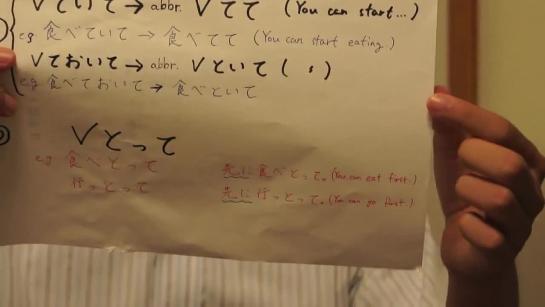 Vていいて → abbr. Vてて (You can start...)
eg 食べていて → 食べてて (You can start eating.)
Vておいて → abbr. Vといて ( 〃 )
eg 食べておいて → 食べといて
② Vとって
eg 食べとって 先に食べとって。(You can eat first.)
行っとって 先に行っとって。(You can go first.)